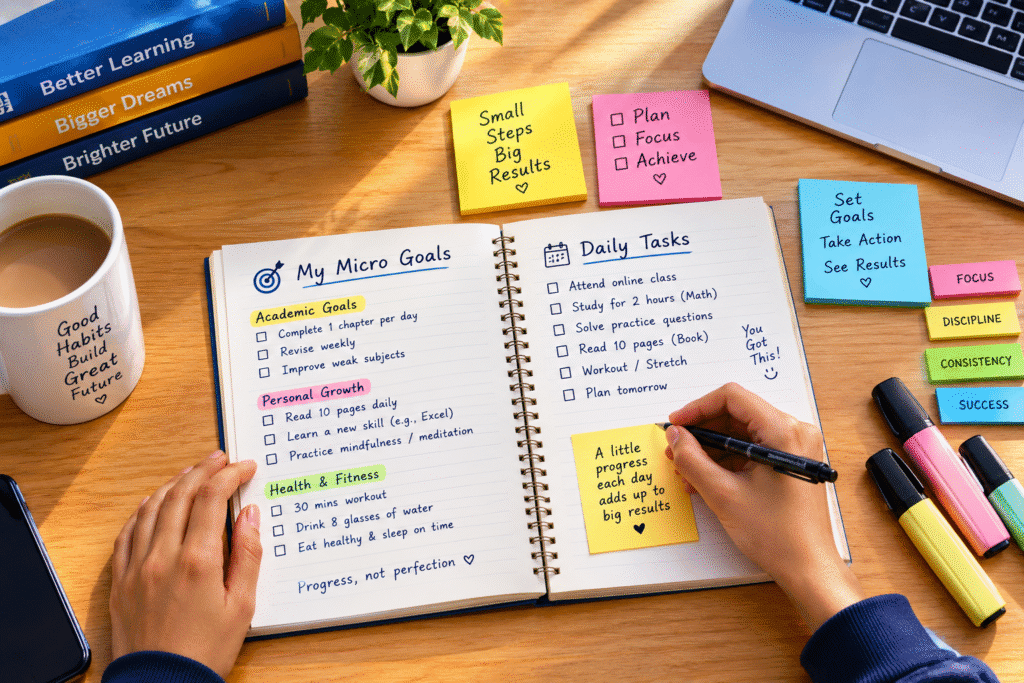 Better Learning
Bigger Dreams
Brighter Future
Small
Steps
Big
Results
Plan
Focus
Achieve
Set
Goals
Take Action
See Results
FOCUS
DISCIPLINE
CONSISTENCY
SUCCESS
Good
Habits
Build
Great
Future
My Micro Goals
Academic Goals
Complete 1 chapter per day
Revise weekly
Improve weak subjects
Personal Growth
Read 10 pages daily
Learn a new skill (e.g., Excel)
Practice mindfulness / meditation
Health & Fitness
30 mins workout
Drink 8 glasses of water
Eat healthy & sleep on time
Progress, not perfection
Daily Tasks
Attend online class
Study for 2 hours (Math)
Solve practice questions
Read 10 pages (Book)
Workout / Stretch
Plan tomorrow
You
Got
This!
A little
progress
each day
adds up to
big results